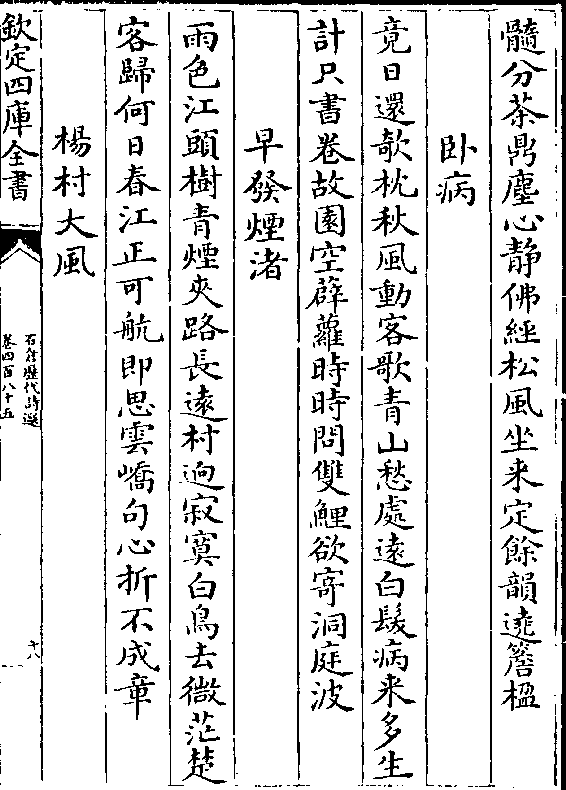 髓分茶鼎塵心靜佛經松風坐来定餘韻遶簷楹
卧病
竟日還欹枕秋風動客歌青山愁處遠白髮病来多生
計只書卷故園空薜蘿時時問雙鯉欲寄洞庭波
早發煙渚
雨色江頭樹青煙夾路長遠村逈寂寞白鳥去微茫楚
客歸何日春江正可航即思雲嶠句心折不成章
楊村大風
欽定四庫全書
石倉歷代詩選
卷四百八十五
十八